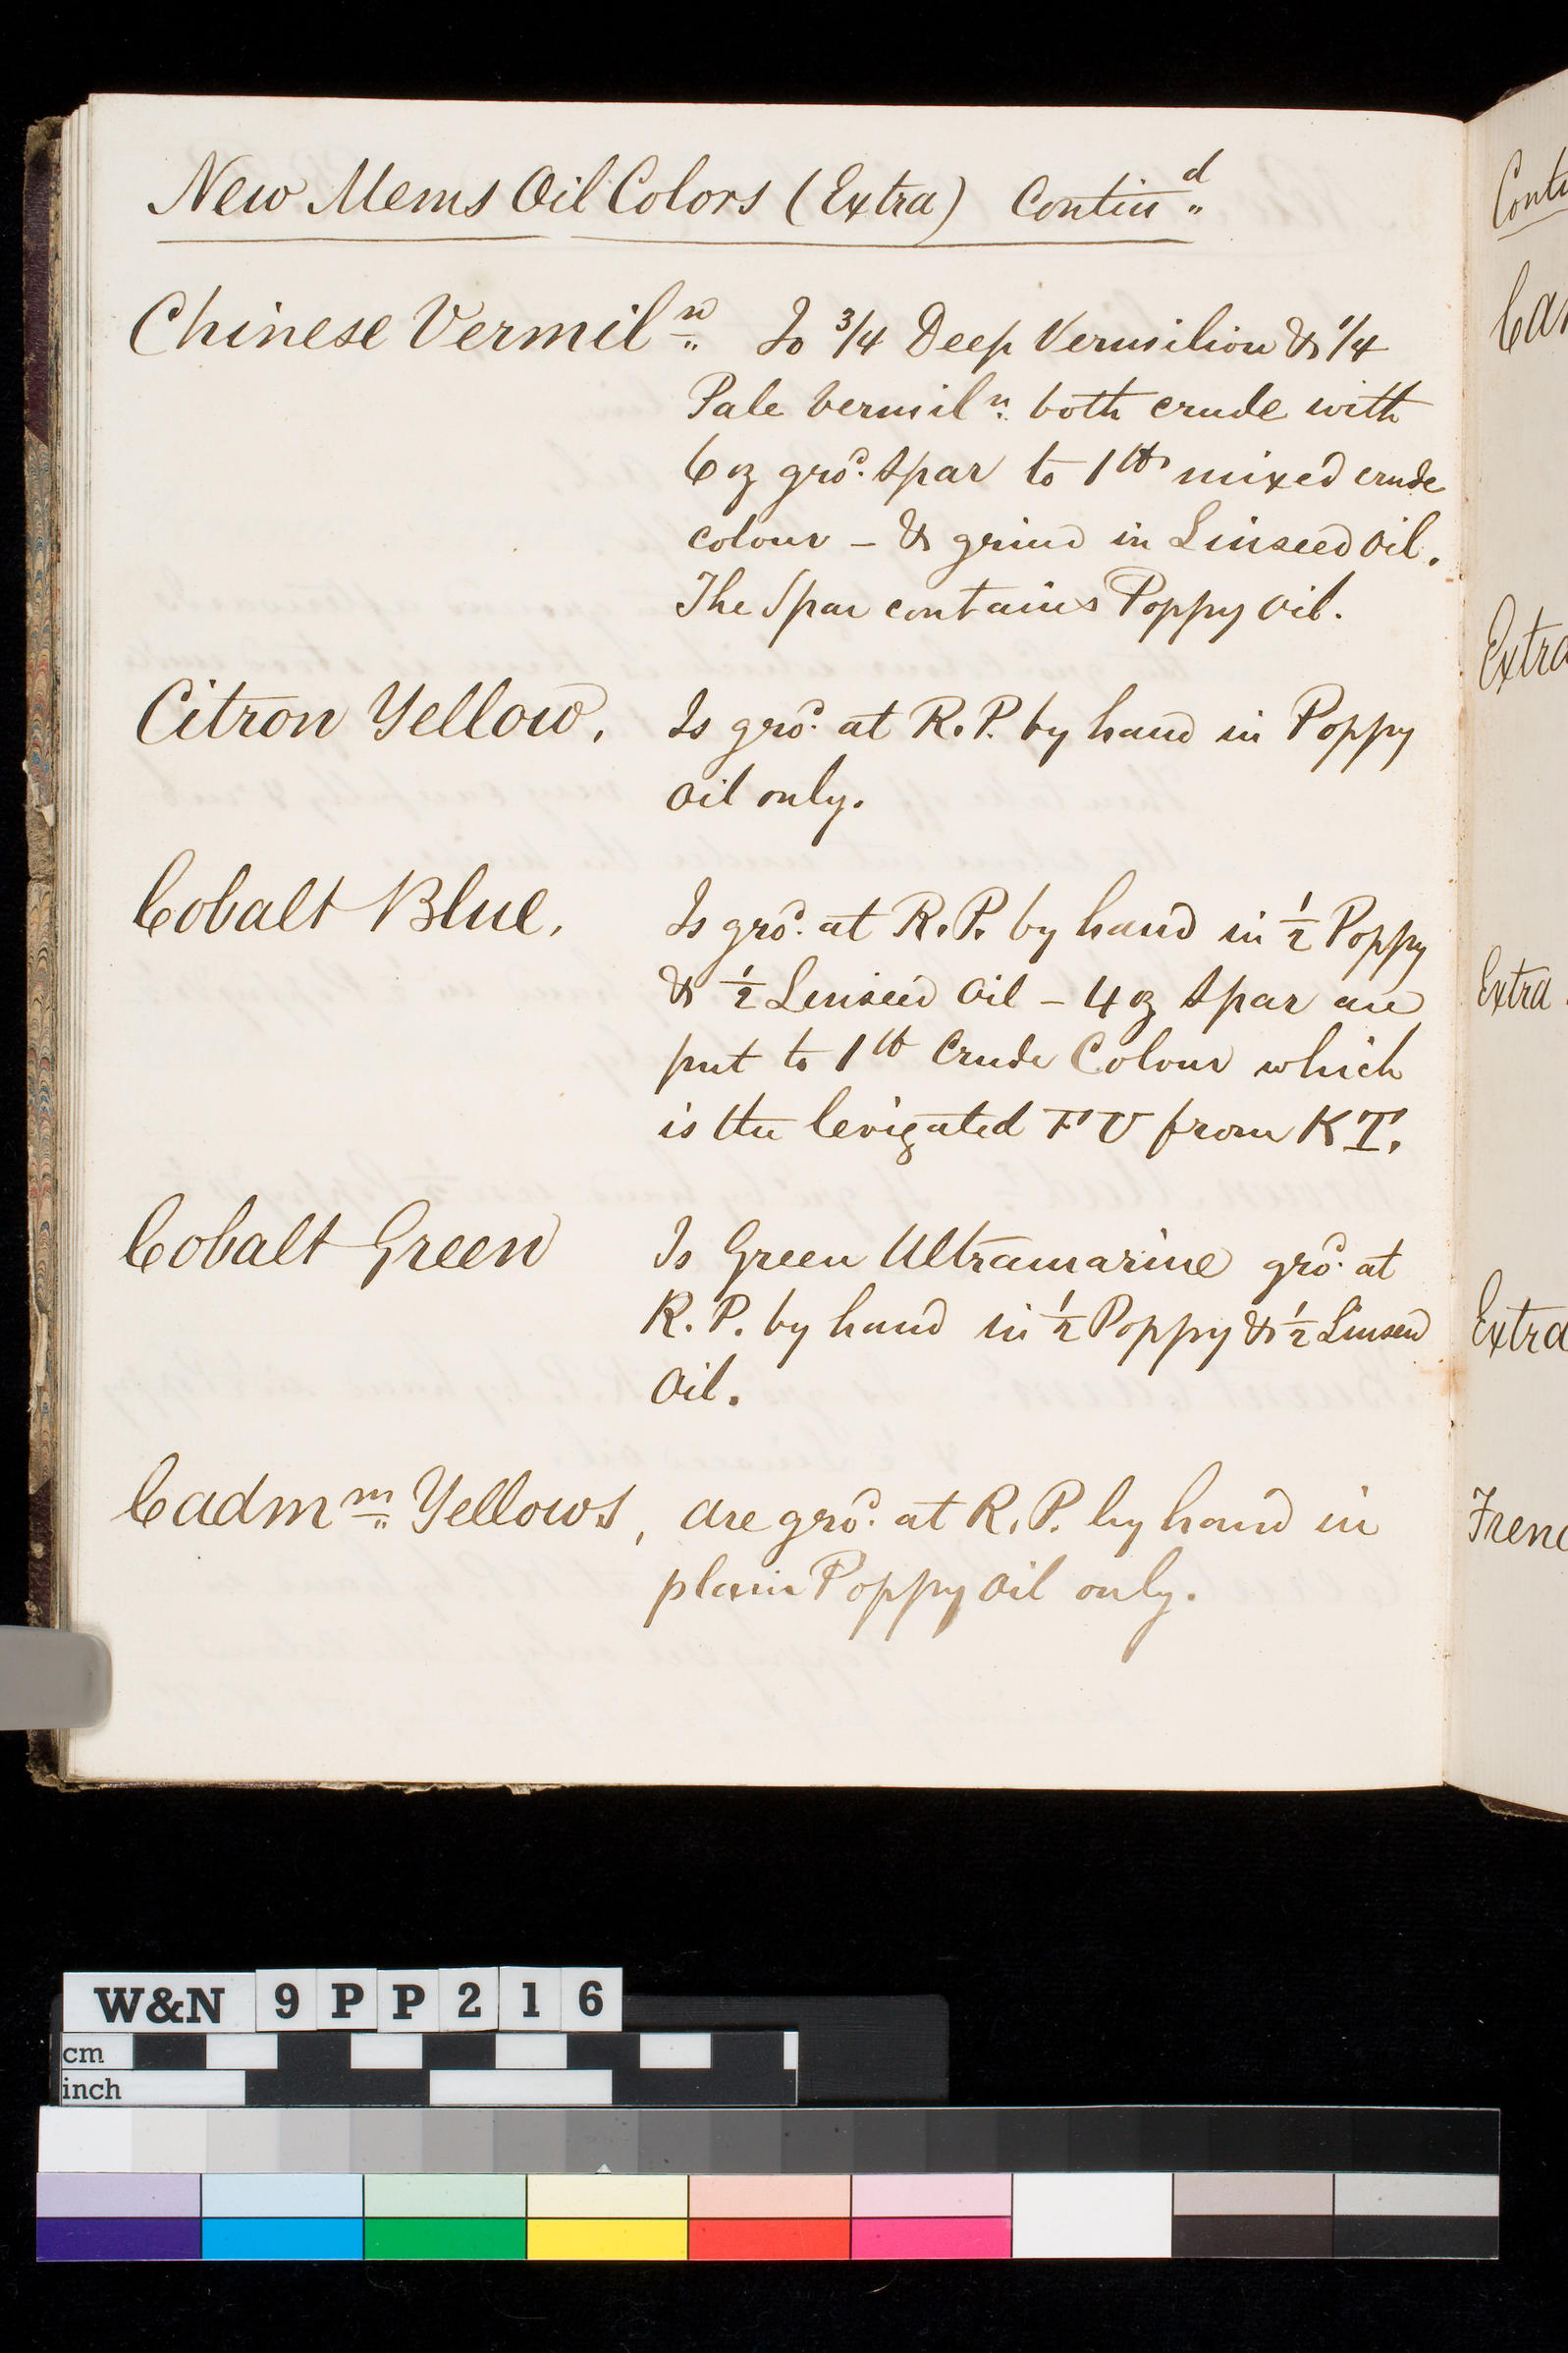 New Mems Oil Colors (Extra) Contin^d„
Chinese Vermil^n„ Is 3/4 Deep Vermilion & 1/4
Pale Vermil^n. both crude with
6 oz gro^d. Spar to 1 lb mixed crude
colour – & grind in Linseed Oil.
The Spar contains Poppy Oil.
Citron Yellow, Is gro^d. at R.P. by hand in Poppy
Oil only.
Cobalt Blue, Is gro^d. at R.P. by hand in 1/2 Poppy
& 1/2 Linseed Oil – 4 oz Spar are
put to 1 lb Crude Colour which
is the levigated FU from KT.
Cobalt Green Is Green Ultramarine gro^d. at
R.P. by hand in 1/2 Poppy & 1/2 Linseed
Oil.
Cadm^m„ Yellows, are gro^d. at R.P. by hand in
plain Poppy Oil only.
Extra
Extra
Extra
W&N 9PP216
cm
inch